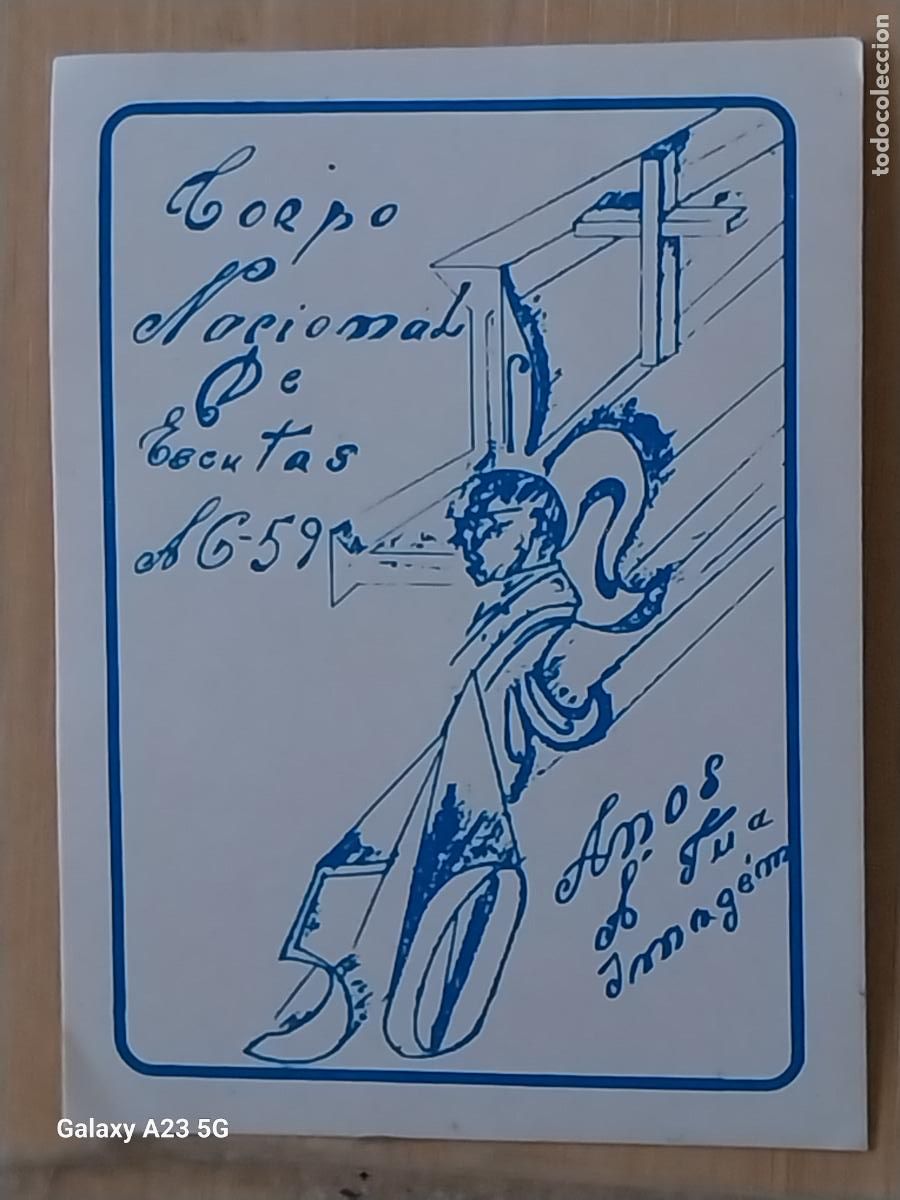 Corpo
Nacional
De
Escutas
AG-59
50
Anos
À Tua
Imagém
todocoleccion
Galaxy A23 5G